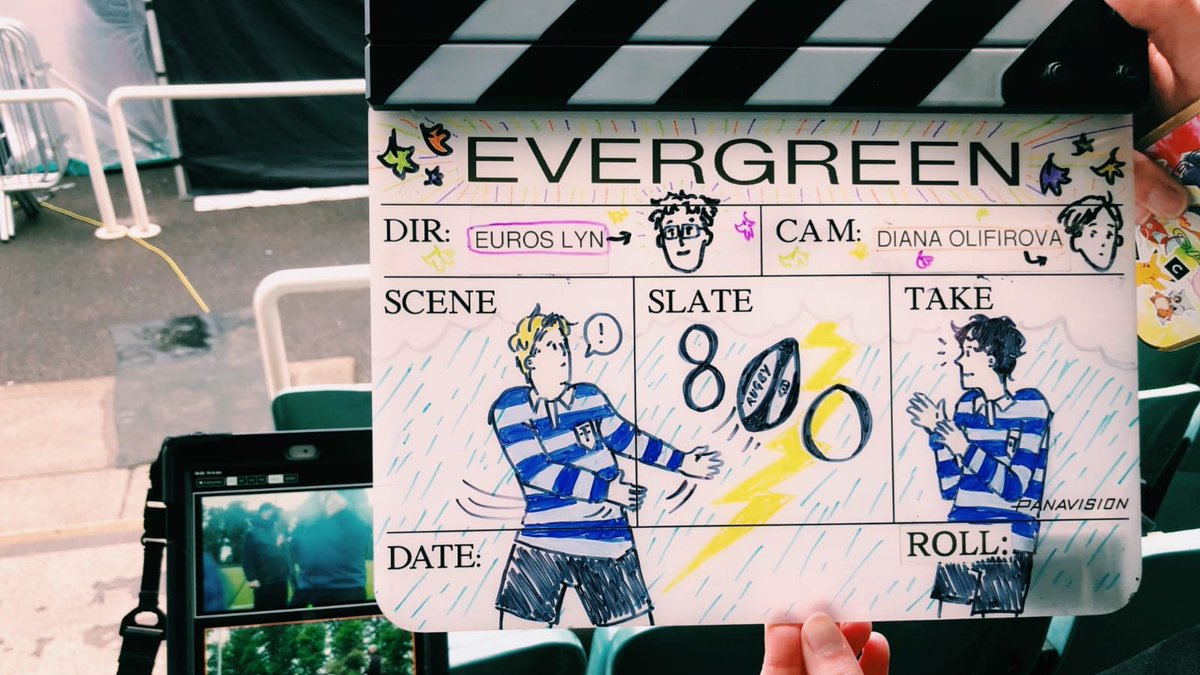 EVERGREEN
DIR: EUROS LYN
CAM: DIANA OLIFIROVA
SCENE
SLATE
TAKE
!
8 0
RUGBY
PANAVISION
DATE:
ROLL: